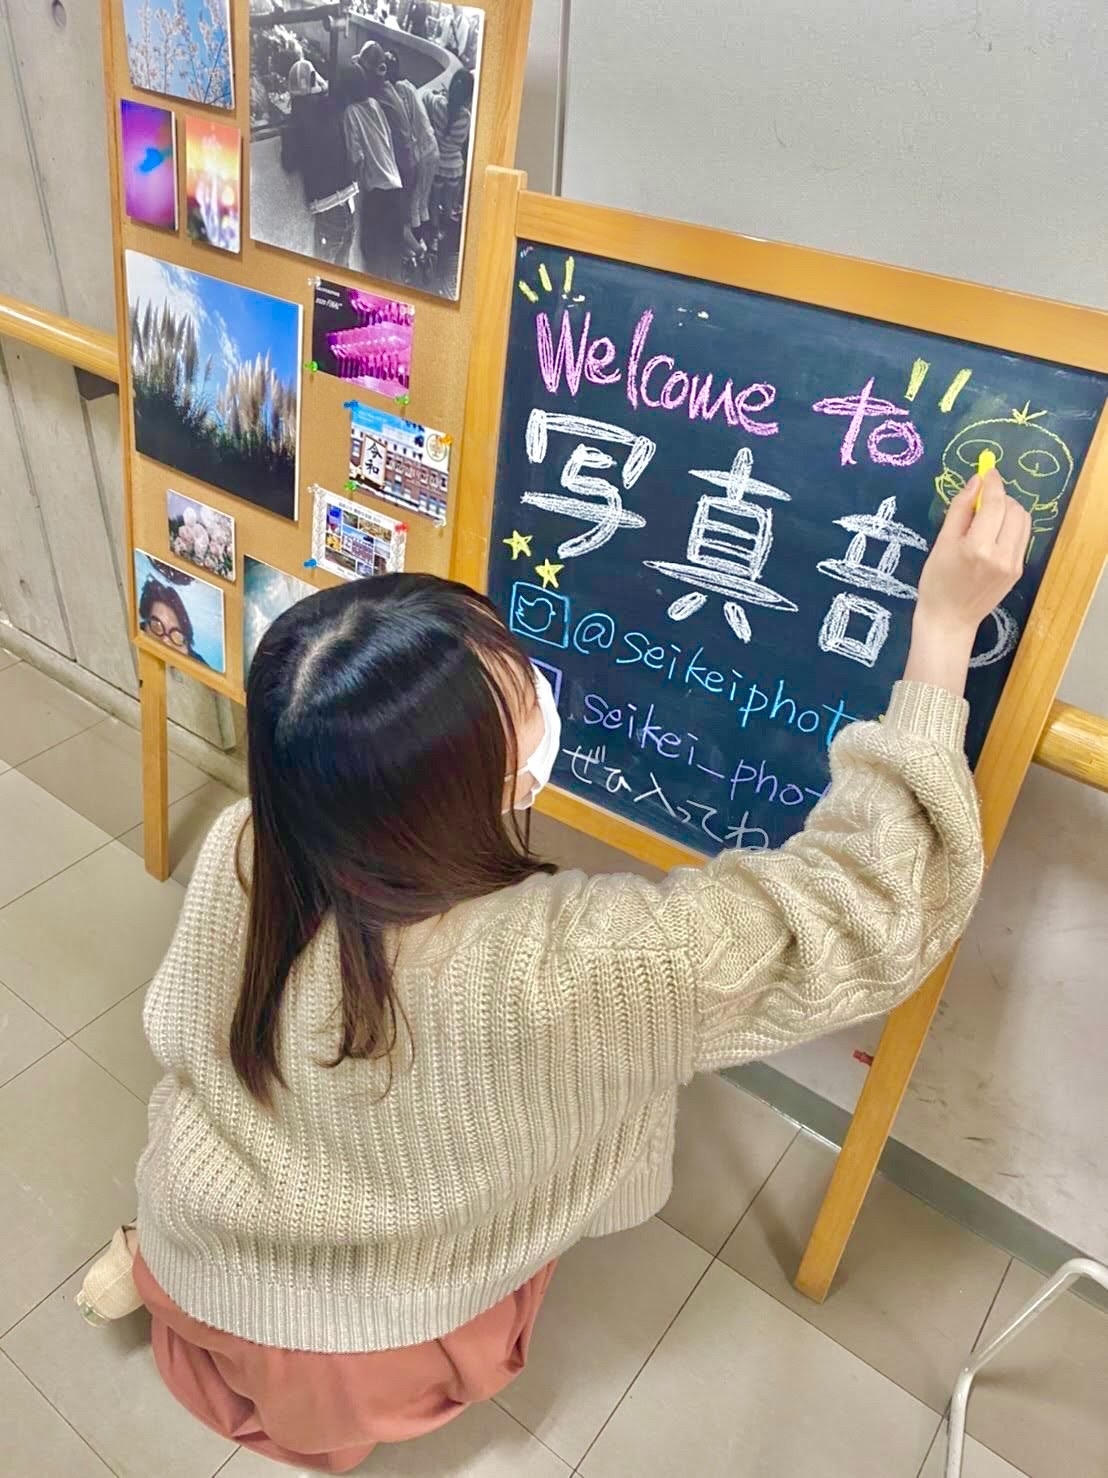 Welcome to
写真部
@seikeiphot
seikei_phot
ぜひ入ってね
令和